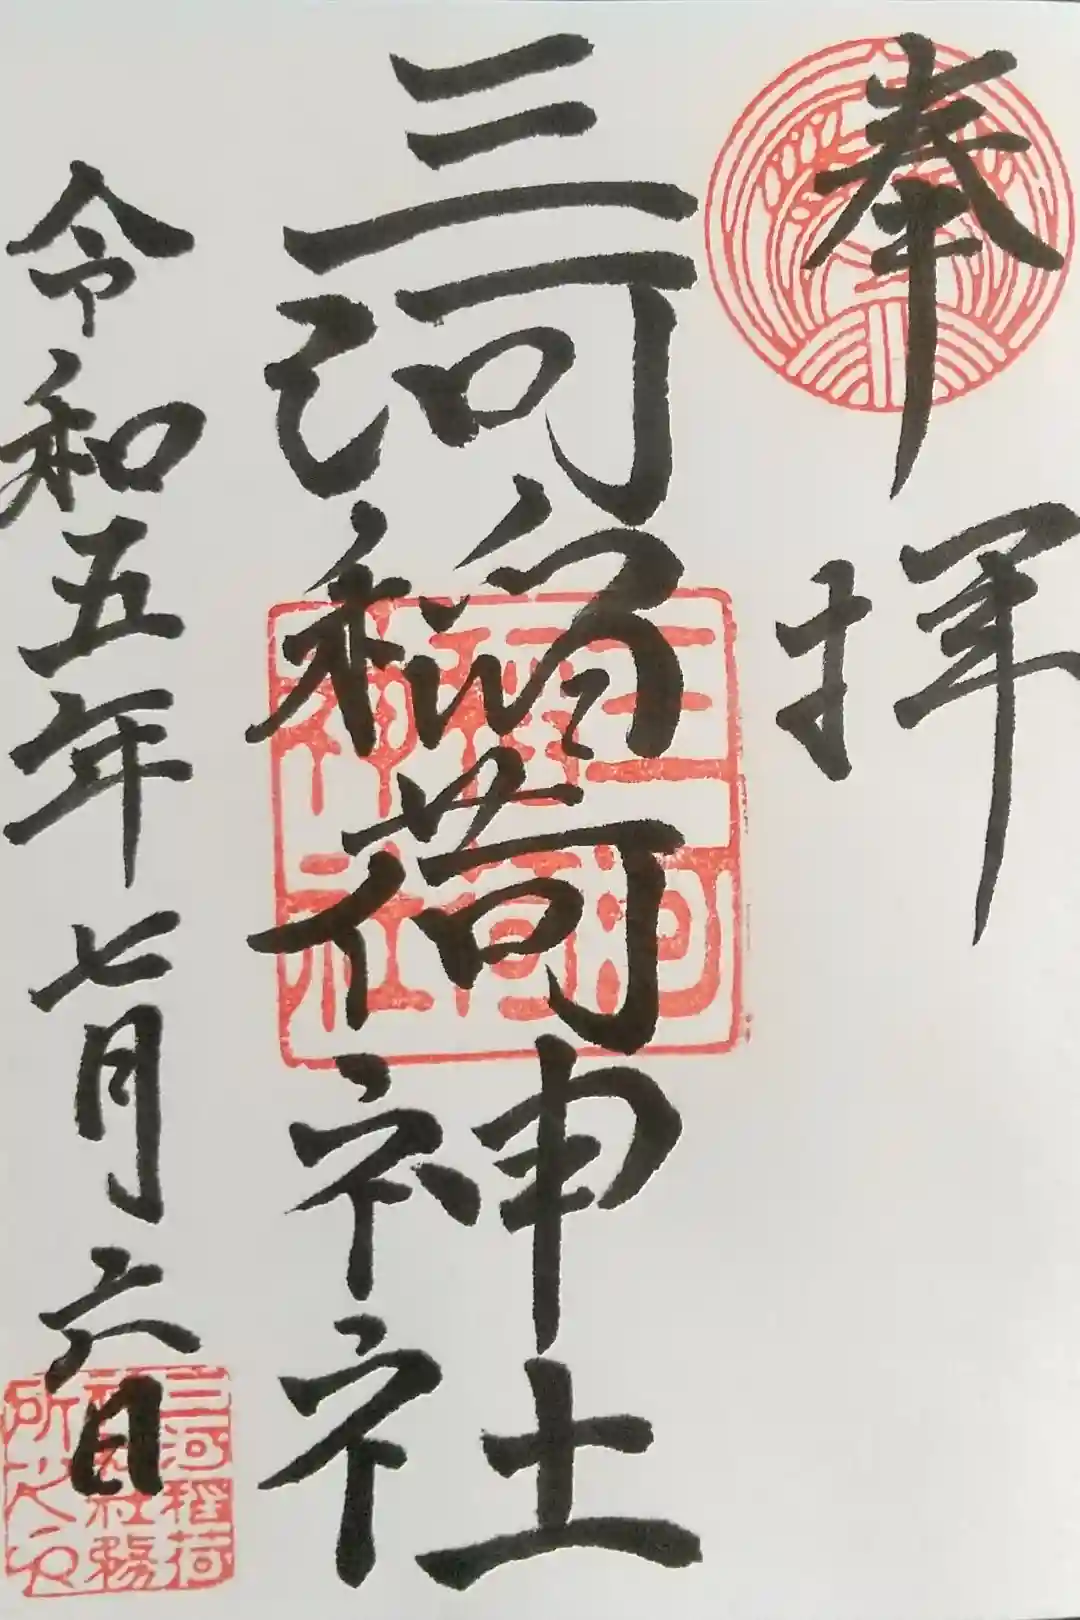 奉拝
三河稲荷神社
三河稲荷神社
令和五年七月六日
三河稲荷
神社務
所之印